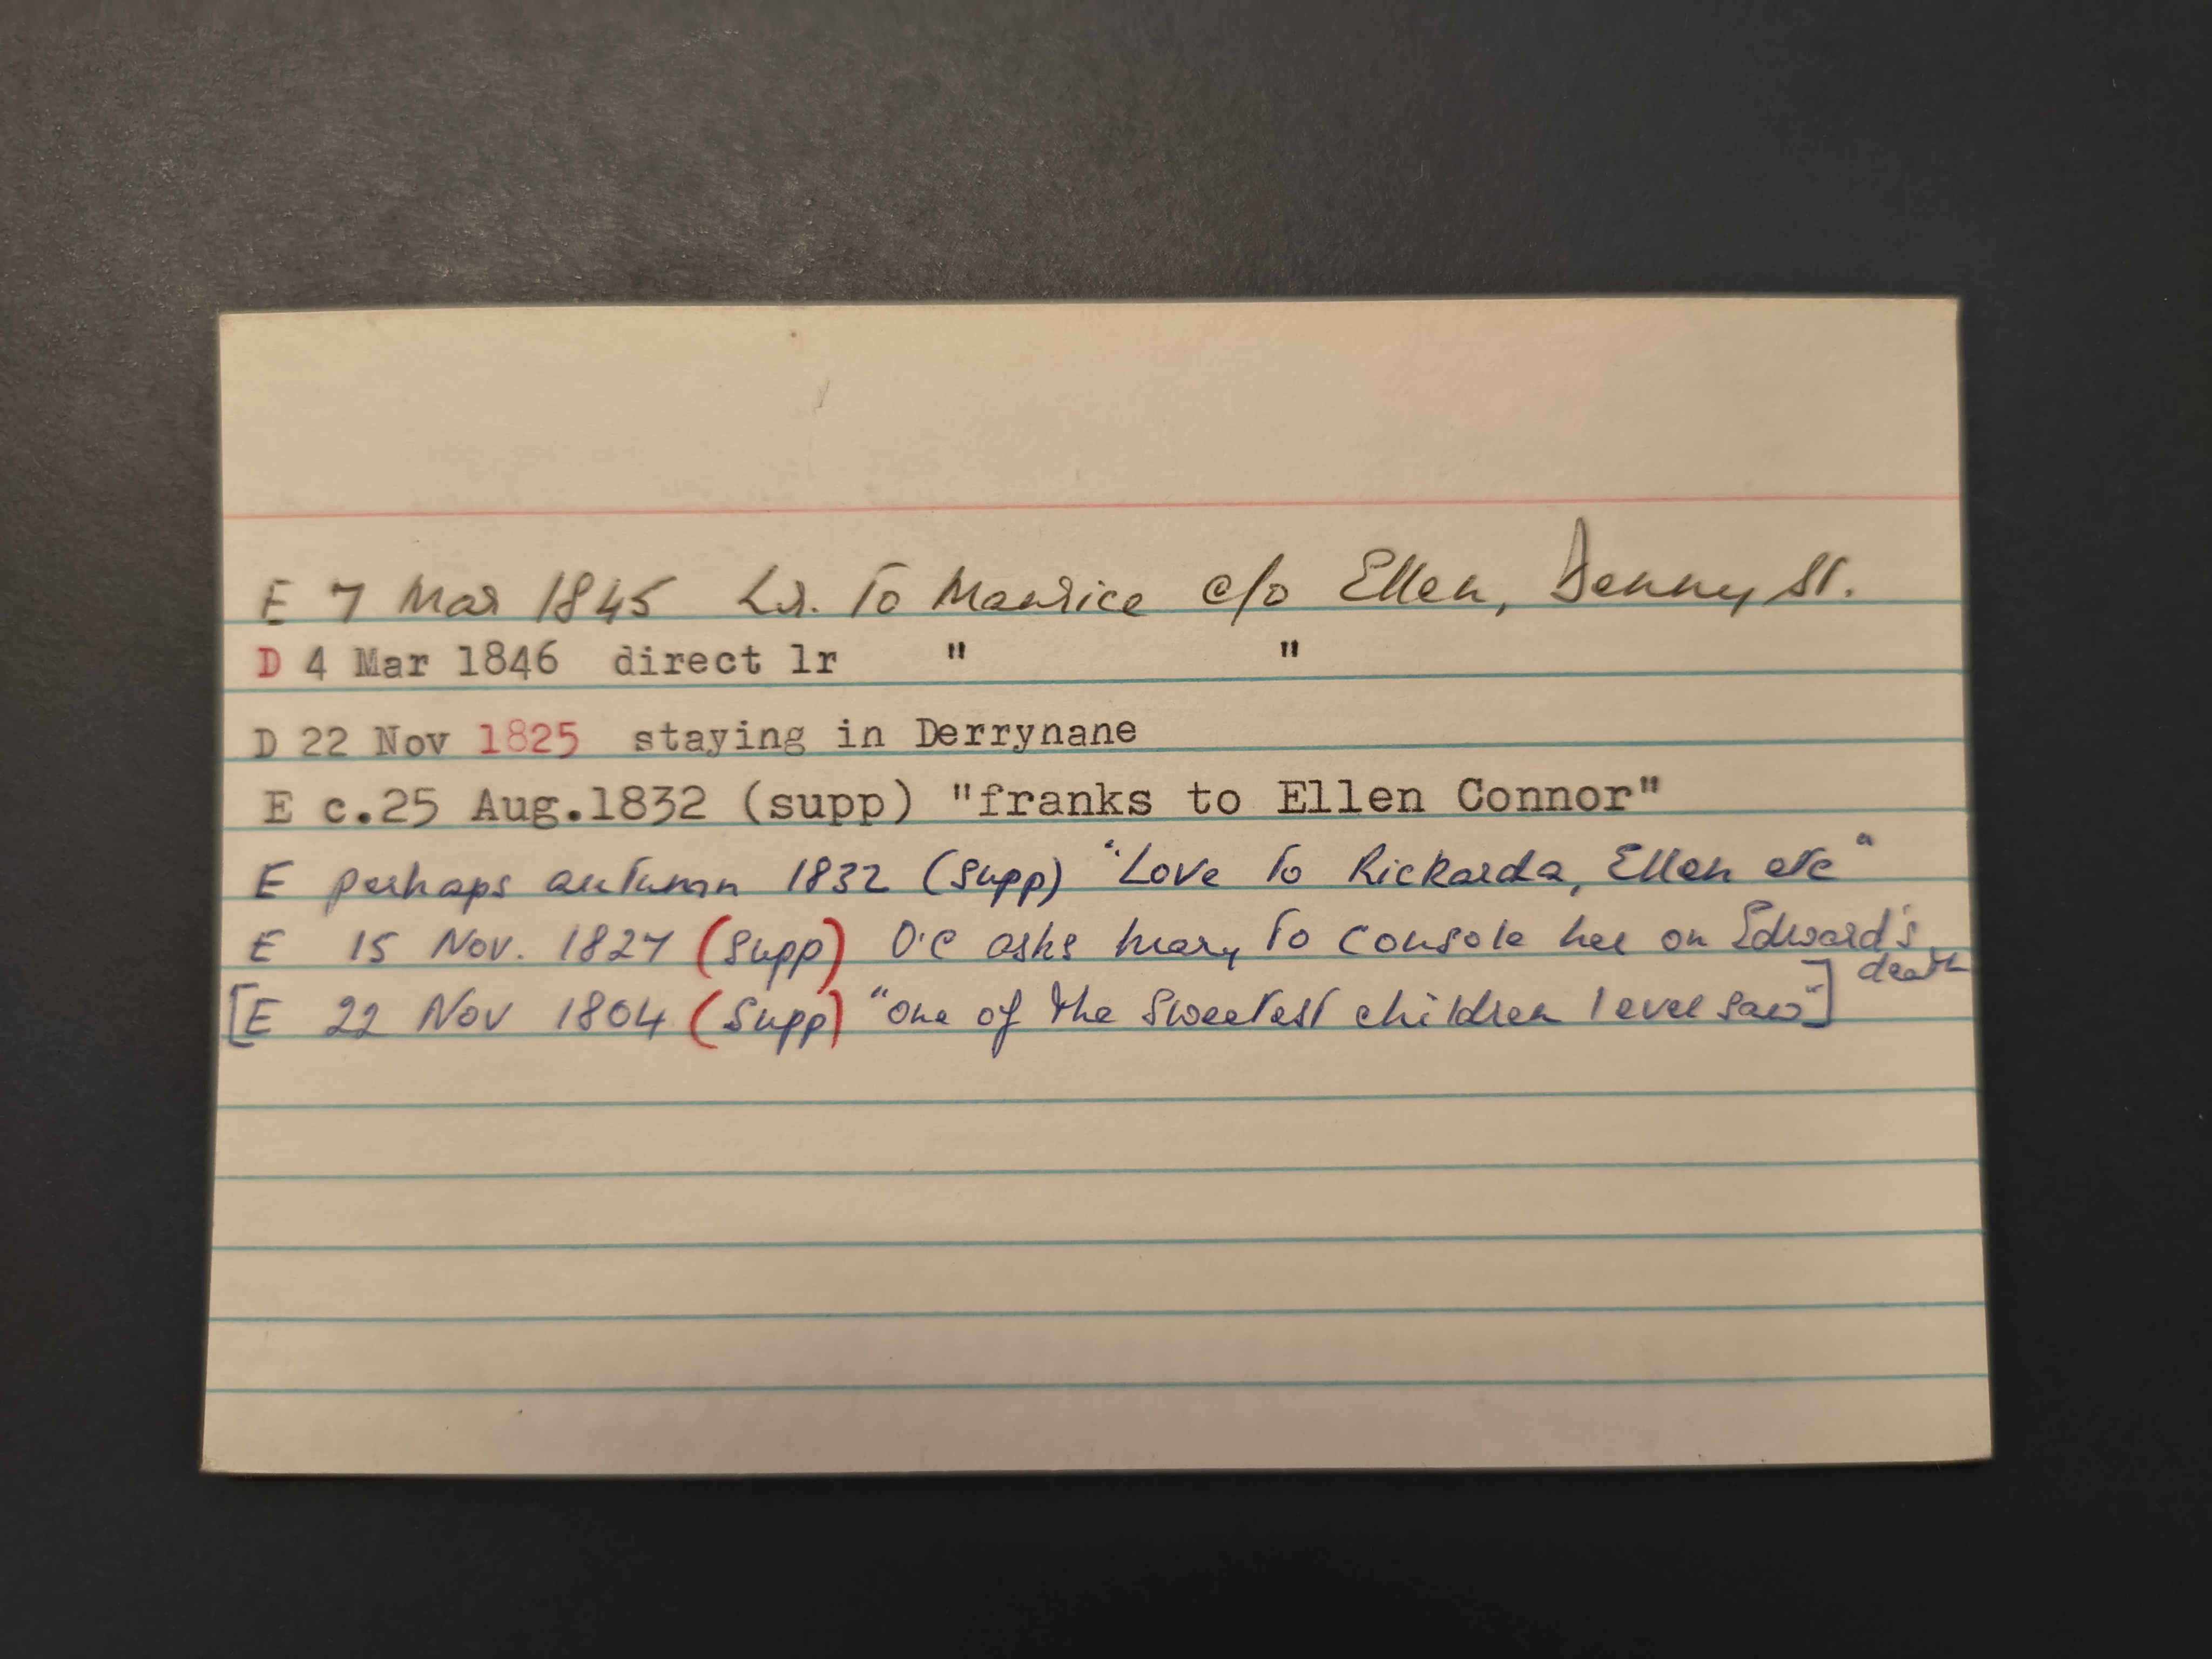 E 7 Mar 1845 Lr. to Maurice c/o Ellen, Denny St.
D 4 Mar 1846 direct lr " "
D 22 Nov 1825 staying in Derrynane
E c.25 Aug.1832 (supp) "franks to Ellen Connor"
E perhaps autumn 1832 (Supp) "Love to Rickarda, Ellen etc"
E 15 Nov. 1827 (Supp) O'C asks Mary to console her on Edward's
death
[E 22 Nov 1804 (Supp) "one of the sweetest children I ever saw"]